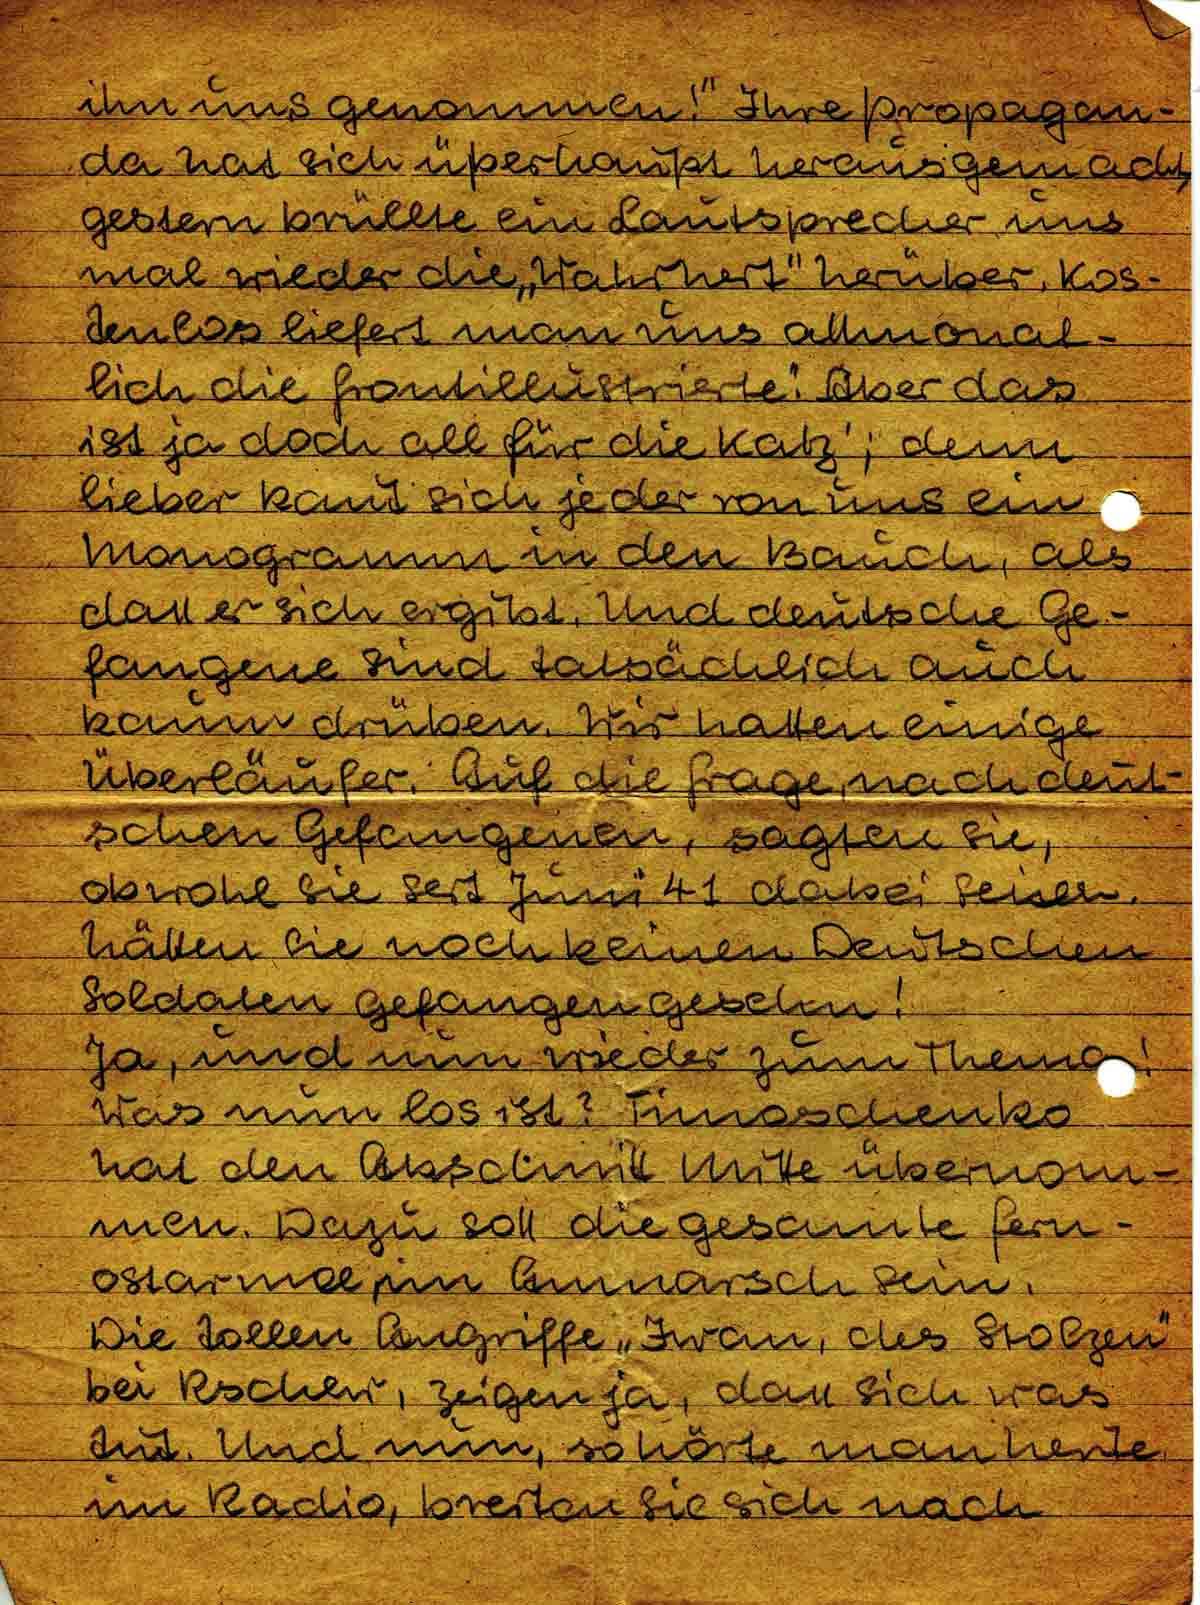 ihn uns genommen!" Ihre propagan-
da hat sich überhaupt herausgemacht,
gestern brüllte ein Lautsprecher uns
mal wieder die „Wahrheit" herüber. Kos-
tenlos liefert man uns allmonat-
lich die Frontillustrierte". Aber das
ist ja doch all für die Katz'; denn
lieber kaut sich jeder von uns ein
Monogramm in den Bauch, als
daß er sich ergibt. Und deutsche Ge-
fangene sind tatsächlich auch
kaum drüben. Wir hatten einige
Überläufer. Auf die Frage, nach deut-
schen Gefangenen, sagten sie,
obwohl sie seit Juni 41 dabei seien.
hätten sie noch keinen Deutschen
Soldaten gefangen gesehn!
Ja, und nun wieder zum Thema!
Was nun los ist? Timoschenko
hat den Abschnitt Mitte übernom-
men. Dazu soll die gesamte Fern-
ostarmee im Anmarsch sein.
Die tollen Angriffe „Iwan, des Stolzen"
bei Rschew, zeigen ja, daß sich was
tut. Und nun, so hörte man heute
im Radio, breiten sie sich nach